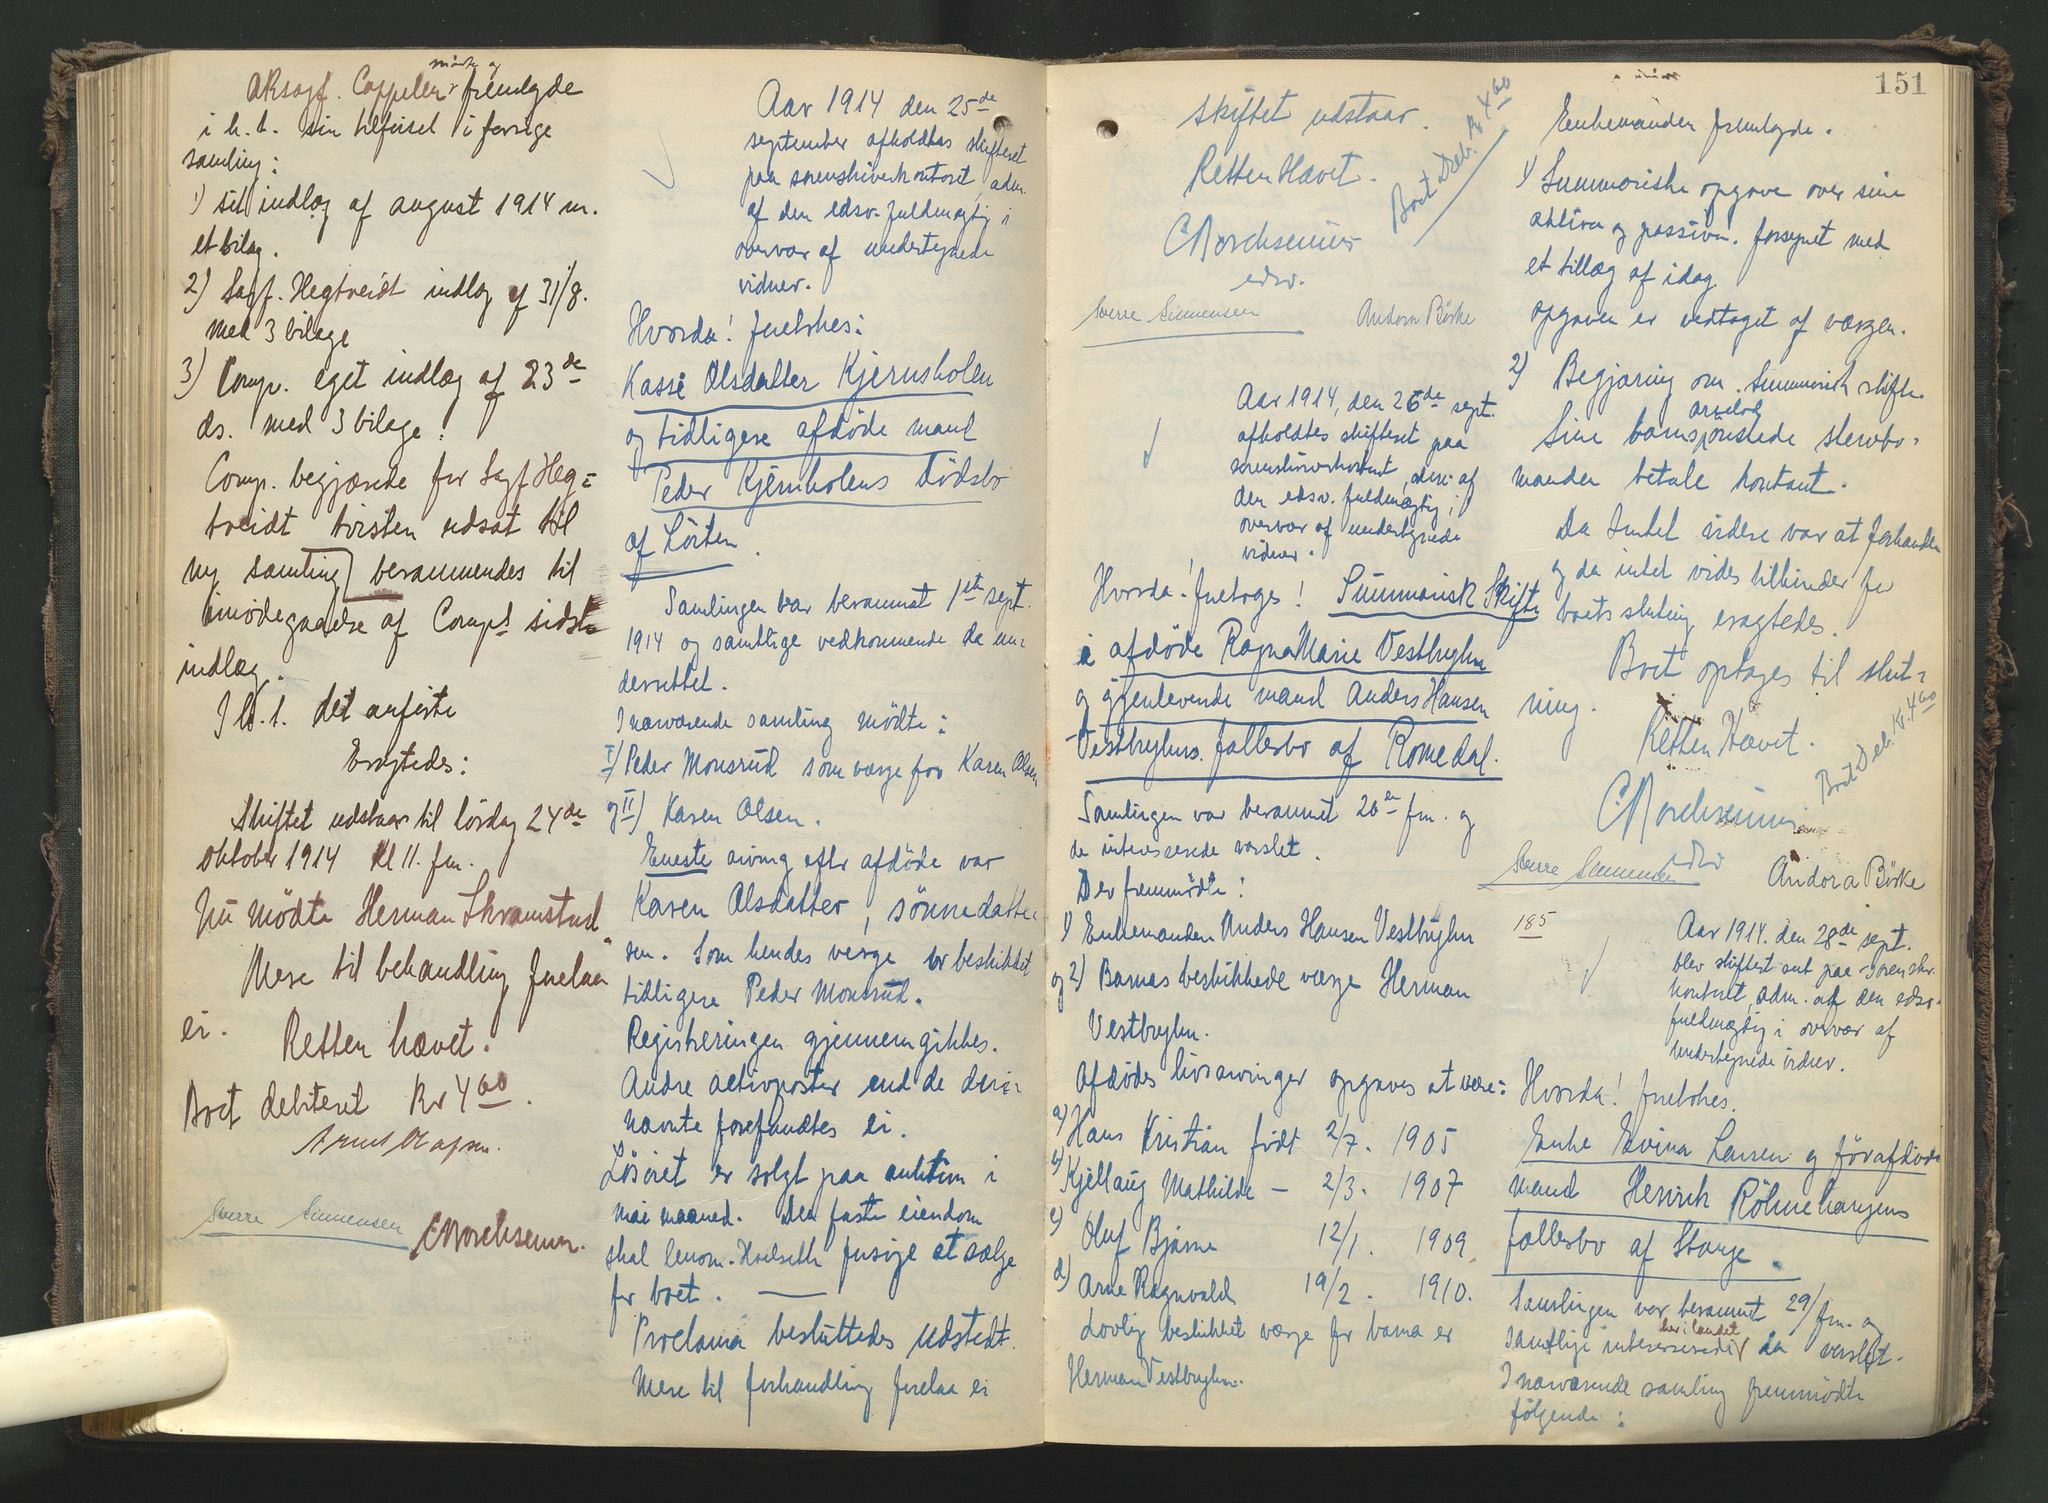 mödte og
ORsagf. Cappelen fremlagde
i h. t. sin tilförsel i forrige
samling:
1) sit indlæg af august 1914 m.
et bilag.
2) Sagf. Hegtveidt indlæg af 31/8.
med 3 bilage
3) Comp. eget indlæg af 23de
ds. med 3 bilage.
Comp. begjærede for Sagf Heg=
tveidt fristen udsat til
ny samling berammendes til
imödegaaelse af Comp.s sidste
indlæg.
I h. t. det anförte
Eragtedes:
Skiftet udstaar til lördag 24de
oktober 1914 kl 11. fm.
Nu mödte Herman Skramstad.
Mere til behandling forelaa
ei. Retten hævet.
Boet debiteret Kr 4 60.
Sverre Simensen CBorchsenius.
Aar 1914 den 25de
september afholdtes skifteret
paa sorenskriverkontoret, adm.
af den edsv. fuldmægtig i
overvær af undertegnede
vidner.
Hvorda! foretokes:
Kassi Olsdatter Kjernsholen
og tidligere afdöde mand
Peder Kjernholens dödsbo
af Löiten.
Samlingen var berammet 1ste sept.
1914 og samtlige vedkommende da un=
derrettet.
I nærværende samling mödte:
I) Peder Monsrud som værge for Karen Olsen
og II) Karen Olsen.
Eneste arving efter afdöde var
Karen Olsdatter, sönnedatte=
ren. Som hendes verge er beskikket
tidligere Peder Monsrud.
Registreringen gjennemgikkes.
Andre activposter end de deri
nævnte forefandtes ei.
Lösöret er solgt paa auktion i
mai maaned. Den faste eiendom
skal lensm. Hoelseth forsöge at sælge
for boet. —
Proclama besluttedes udstedt.
Mere til forhandling forelaa ei
151
Skiftet udstaar.
Retten Hævet.
Boet Deb. Kr. 4 60
CBorchsenius
edsv.
Sverre Simensen Andora Börke
Aar 1914, den 26de sept.
afholdtes skifteret paa
sorenskriverkontoret, adm. af
den edsv. fuldmægtig i
overvær af undertegnede
vidner.
Hvorda! foretoges! Summarisk Skifte
i afdöde Ragna Marie Vestbyhn
og gjenlevende mand Anders Hansen
Vestbyhns. fællesbo af Romedal.
Samlingen var berammet 20de fm. og
de interesserede varslet.
Der fremmödte:
1) Enkemanden Anders Hansen Vestbyhn
og 2) Barnas beskikkede værge Herman
Vestbyhn.
Afdödes livsarvinger opgaves at være:
a) Hans Kristian födt 2/7. 1905
b) Kjellaug Mathilde — 2/3. 1907
c) Oluf Bjarne 12/1. 1909
d) Arne Ragnvald 19/2. 1910.
Lovlig beskikket værge for barna er
Herman Vestbyhn.
Enkemanden fremlagde.
1) Summariske opgave over sine
aktiva og passiva. forsynet med
et tillæg af idag.
opgaven er vedtaget af værgen.
2) Begjæring om Summarisk skifte.
arvelod
Sine barns önskede stervbo=
manden betale kontant.
Da Intet videre var at forhandle
og da intet vides tilhinder for
boets slutning eragtedes.
Boet optages til slut=
ning.
Retten Hævet.
Boet Deb. Kr. 4 60
CBorchsenius
edsv
Sverre Simensen Andora Börke
185
Aar 1914. den 28de sept.
blev skifteret sat paa Sorenskr.
kontoret, adm. af den edsv.
fuldmægtig i overvær af
undertegnede vidner.
Hvorda! foretokes.
Enke Evina Larsen og förafdöde
mand Henrik Röhnehaugens
fællesbo af Stange.
Samlingen var berammet 29/ fm. og
her i landet
samtlige interesserede da varslet.
I nærværende samling fremmödte
fölgende: